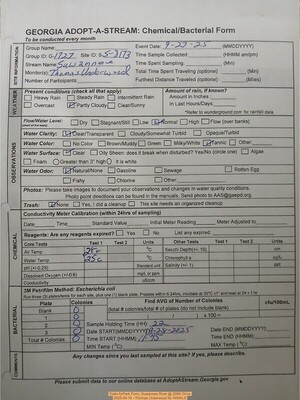 GEORGIA ADOPT-A-STREAM: Chemical/Bacterial Form
To be conducted every month
Group Name: Event Date 9-27-25 (MMDDYYYY)
Group ID: G-1727 Site ID: S-3173 Time Sample Collected (HHMM am/pm)
Stream Name: Suwannee Time Spent Sampling: (Min)
Monitor(s): Total Time Spent Traveling (optional) (Min)
Number of Participants: Furthest Distance Traveled (optional) (Miles)
WEATHER
Present conditions (check all that apply) Amount of rain, if known?
Heavy Rain Steady Rain Intermittent Rain Amount in Inches
Overcast Partly Cloudy Clear/Sunny In Last Hours/Days
*Refer to wunderground.com for rainfall data
OBSERVATIONS
Flow/Water Level Dry Stagnant/Still Low Normal High Flood (over banks)
Water Clarity: Clear/Transparent Cloudy/Somewhat Turbid Opaque/Turbid
Water Color: No Color Brown/Muddy Green Milky/White Tannic Other:
Water Surface: Clear Oily Sheen: does it break when disturbed? Yes/No (circle one) Algae
Foam Greater than 3" high It is white
Water Odor: Natural/None Gasoline Sewage Rotten Egg
Fishy Chlorine Other:
Photos: Please take images to document your observations and changes in water quality conditions.
Photo point directions can be found in the manuals. Send photo to AAS@gaepd.org
Trash: None Yes, I did a cleanup This site needs an organized cleanup
CHEMICAL
Conductivity Meter Calibration (within 24hrs of sampling)
Date Time Standard Value Initial Meter Reading Meter Adjusted to
Reagents: Are any reagents expired? Yes No List any expired:
Core Tests Test 1 Test 2 Units Other Tests Test 1 Test 2 Units
Air Temp °C Secchi Depth cm
Water Temp 25c °C Chlorophyll a ug/L
pH (+/-0.25) Standard unit Salinity (+/- 1) ppt
Dissolved Oxygen (+/-0.6) mg/L or ppm
Conductivity uS/cm
BACTERIAL
3M Petrifilm Method: Escherichia coli
Plate Colonies Find AVG Number of Colonies cfu/100mL
Blank 0 (total # colonies/total # of plates (do not include blank)
1 0 x 100 =
2 0 Sample Holding Time (HH) 22
3 0 Date START (MMDDYYYY) Date END (MMDDYYYY)
Total # Colonies 0 Time START (HHMM) Time END (HHMM)
MIN Temp (°C) MAX Temp (°C)
COMMENTS
Any changes since you last sampled at this site? If yes, please describe.
Please submit data to our online database at AdoptAStream.Georgia.gov